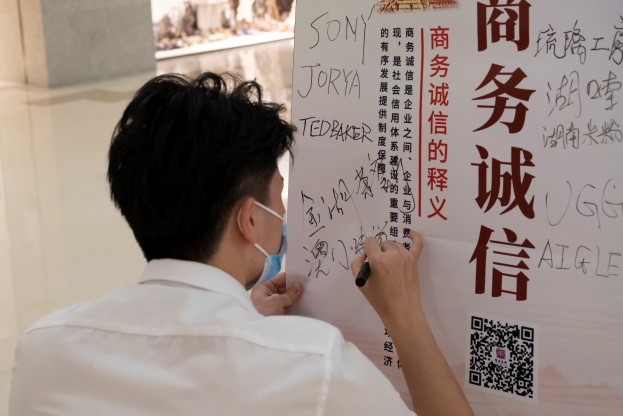 SONY
JORYA
TEDBAKER
商务诚信是企业之间、企业与消费者
现，是社会信用体系建设的重要组
的有序发展提供制度保障。
商务诚信的释义
商务诚信
琉璃工房
湖南米粉
UGG
AIGLE
经济